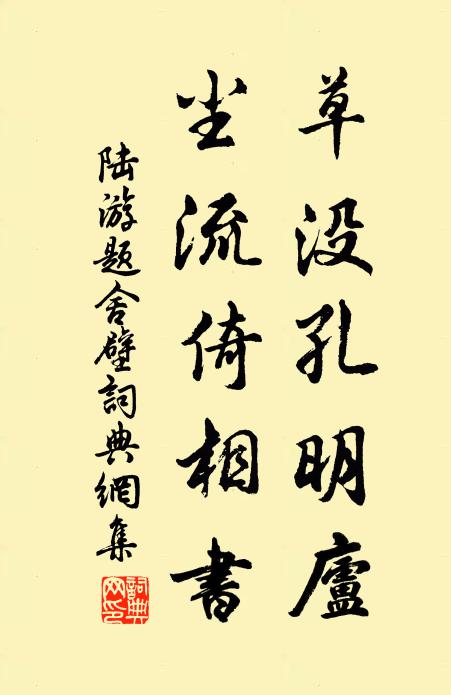 草没孔明廬
尘流倚相書
陆游题舍壁詞典網集
詞典网印